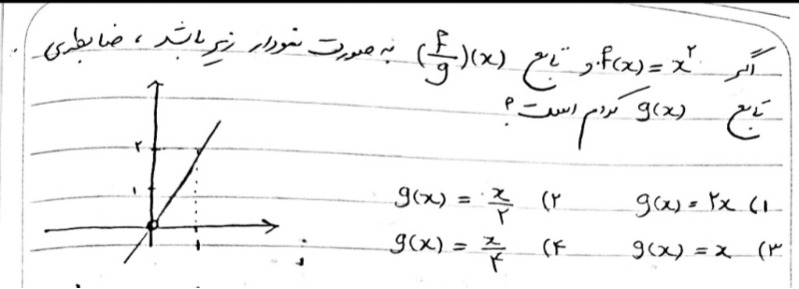 اگر f(x) = x² و تابع (f/g)(x) به صورت نمودار زیر باشد، ضابطه‌ی
تابع g(x) کدام است؟
۱) g(x) = ۲x ۲) g(x) = x/۲
۳) g(x) = x ۴) g(x) = x/۴
۲
۱
۱